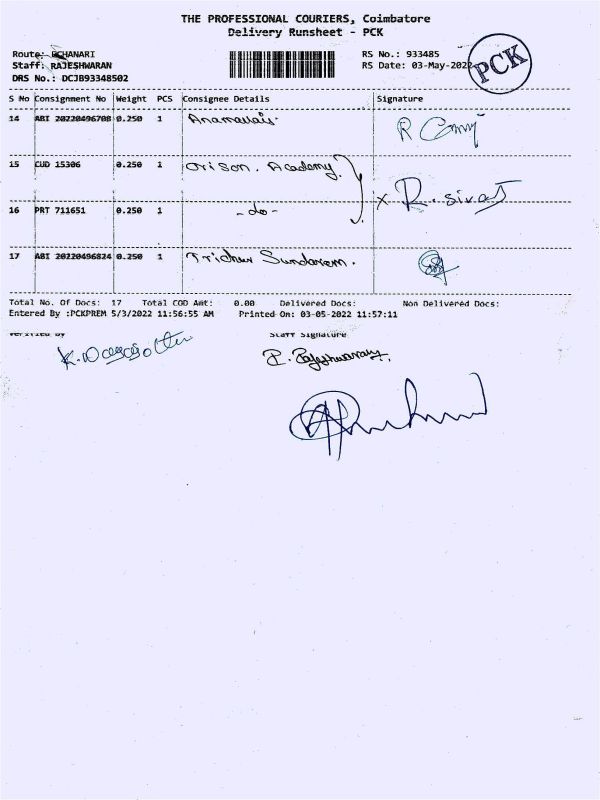 THE PROFESSIONAL COURIERS, Coimbatore
Delivery Runsheet - PCK
Route: ECHANARI
Staff: RAJESHWARAN
DRS No.: DCJB93348502
RS No.: 933485
RS Date: 03-May-2022
PCK
S No Consignment No Weight PCS Consignee Details Signature
14 ABI 20220496708 0.250 1 Anamallais
15 CUD 15306 0.250 1 Orison. Academy.
16 PRT 711651 0.250 1 -do- x R. siva
17 ABI 20220496824 0.250 1 Trichur Sundaram.
Total No. Of Docs: 17 Total COD Amt: 0.00 Delivered Docs: Non Delivered Docs:
Entered By :PCKPREM 5/3/2022 11:56:55 AM Printed On: 03-05-2022 11:57:11
Verified By Staff Signature
P. Rajeshwaran.